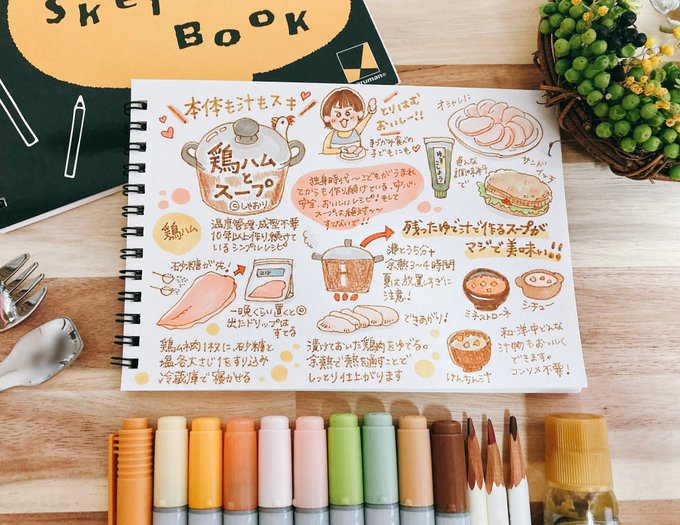 Sketch
BOOK
maruman
本体も汁もスキ
鶏ハム
と
スープ
©しゃおり
とりはむ
おいしー!!
オシャレに
ゆずこしょう
色んな
調味料
で
サンドイッチ
独身時代〜こどもがうまれ
てからも作り続けている、安心
安全、おいしいレシピ!そして
スープは絶対〜
すてないで!!
鶏ハム
温度管理・成型不要
10年以上作り続けて
いるシンプルレシピ
残ったゆで汁で作るスープが
マジで美味い!!
お砂糖が先!
一晩くらい置くと
出たドリップは
すてる
沸とう5分+
余熱3〜4時間
夏は放置しすぎに
注意!
できあがり!
ミネストローネ
シチュー
けんちん汁
和・洋・中どんな
汁物もおいしく
できます。
コンソメ不要!
鶏ムネ肉1枚に、砂糖と
塩各大さじ1をすり込み
冷蔵庫で寝かせる
漬けておいた鶏肉をゆでる。
余熱で熱を通すことで
しっとり仕上がります